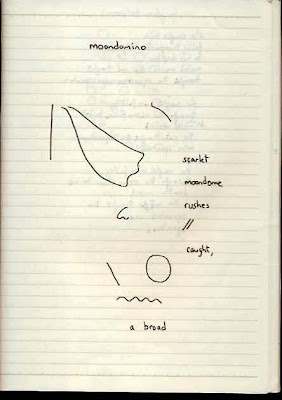 moondomino
scarlet
moondome
rushes
//
caught,
a broad